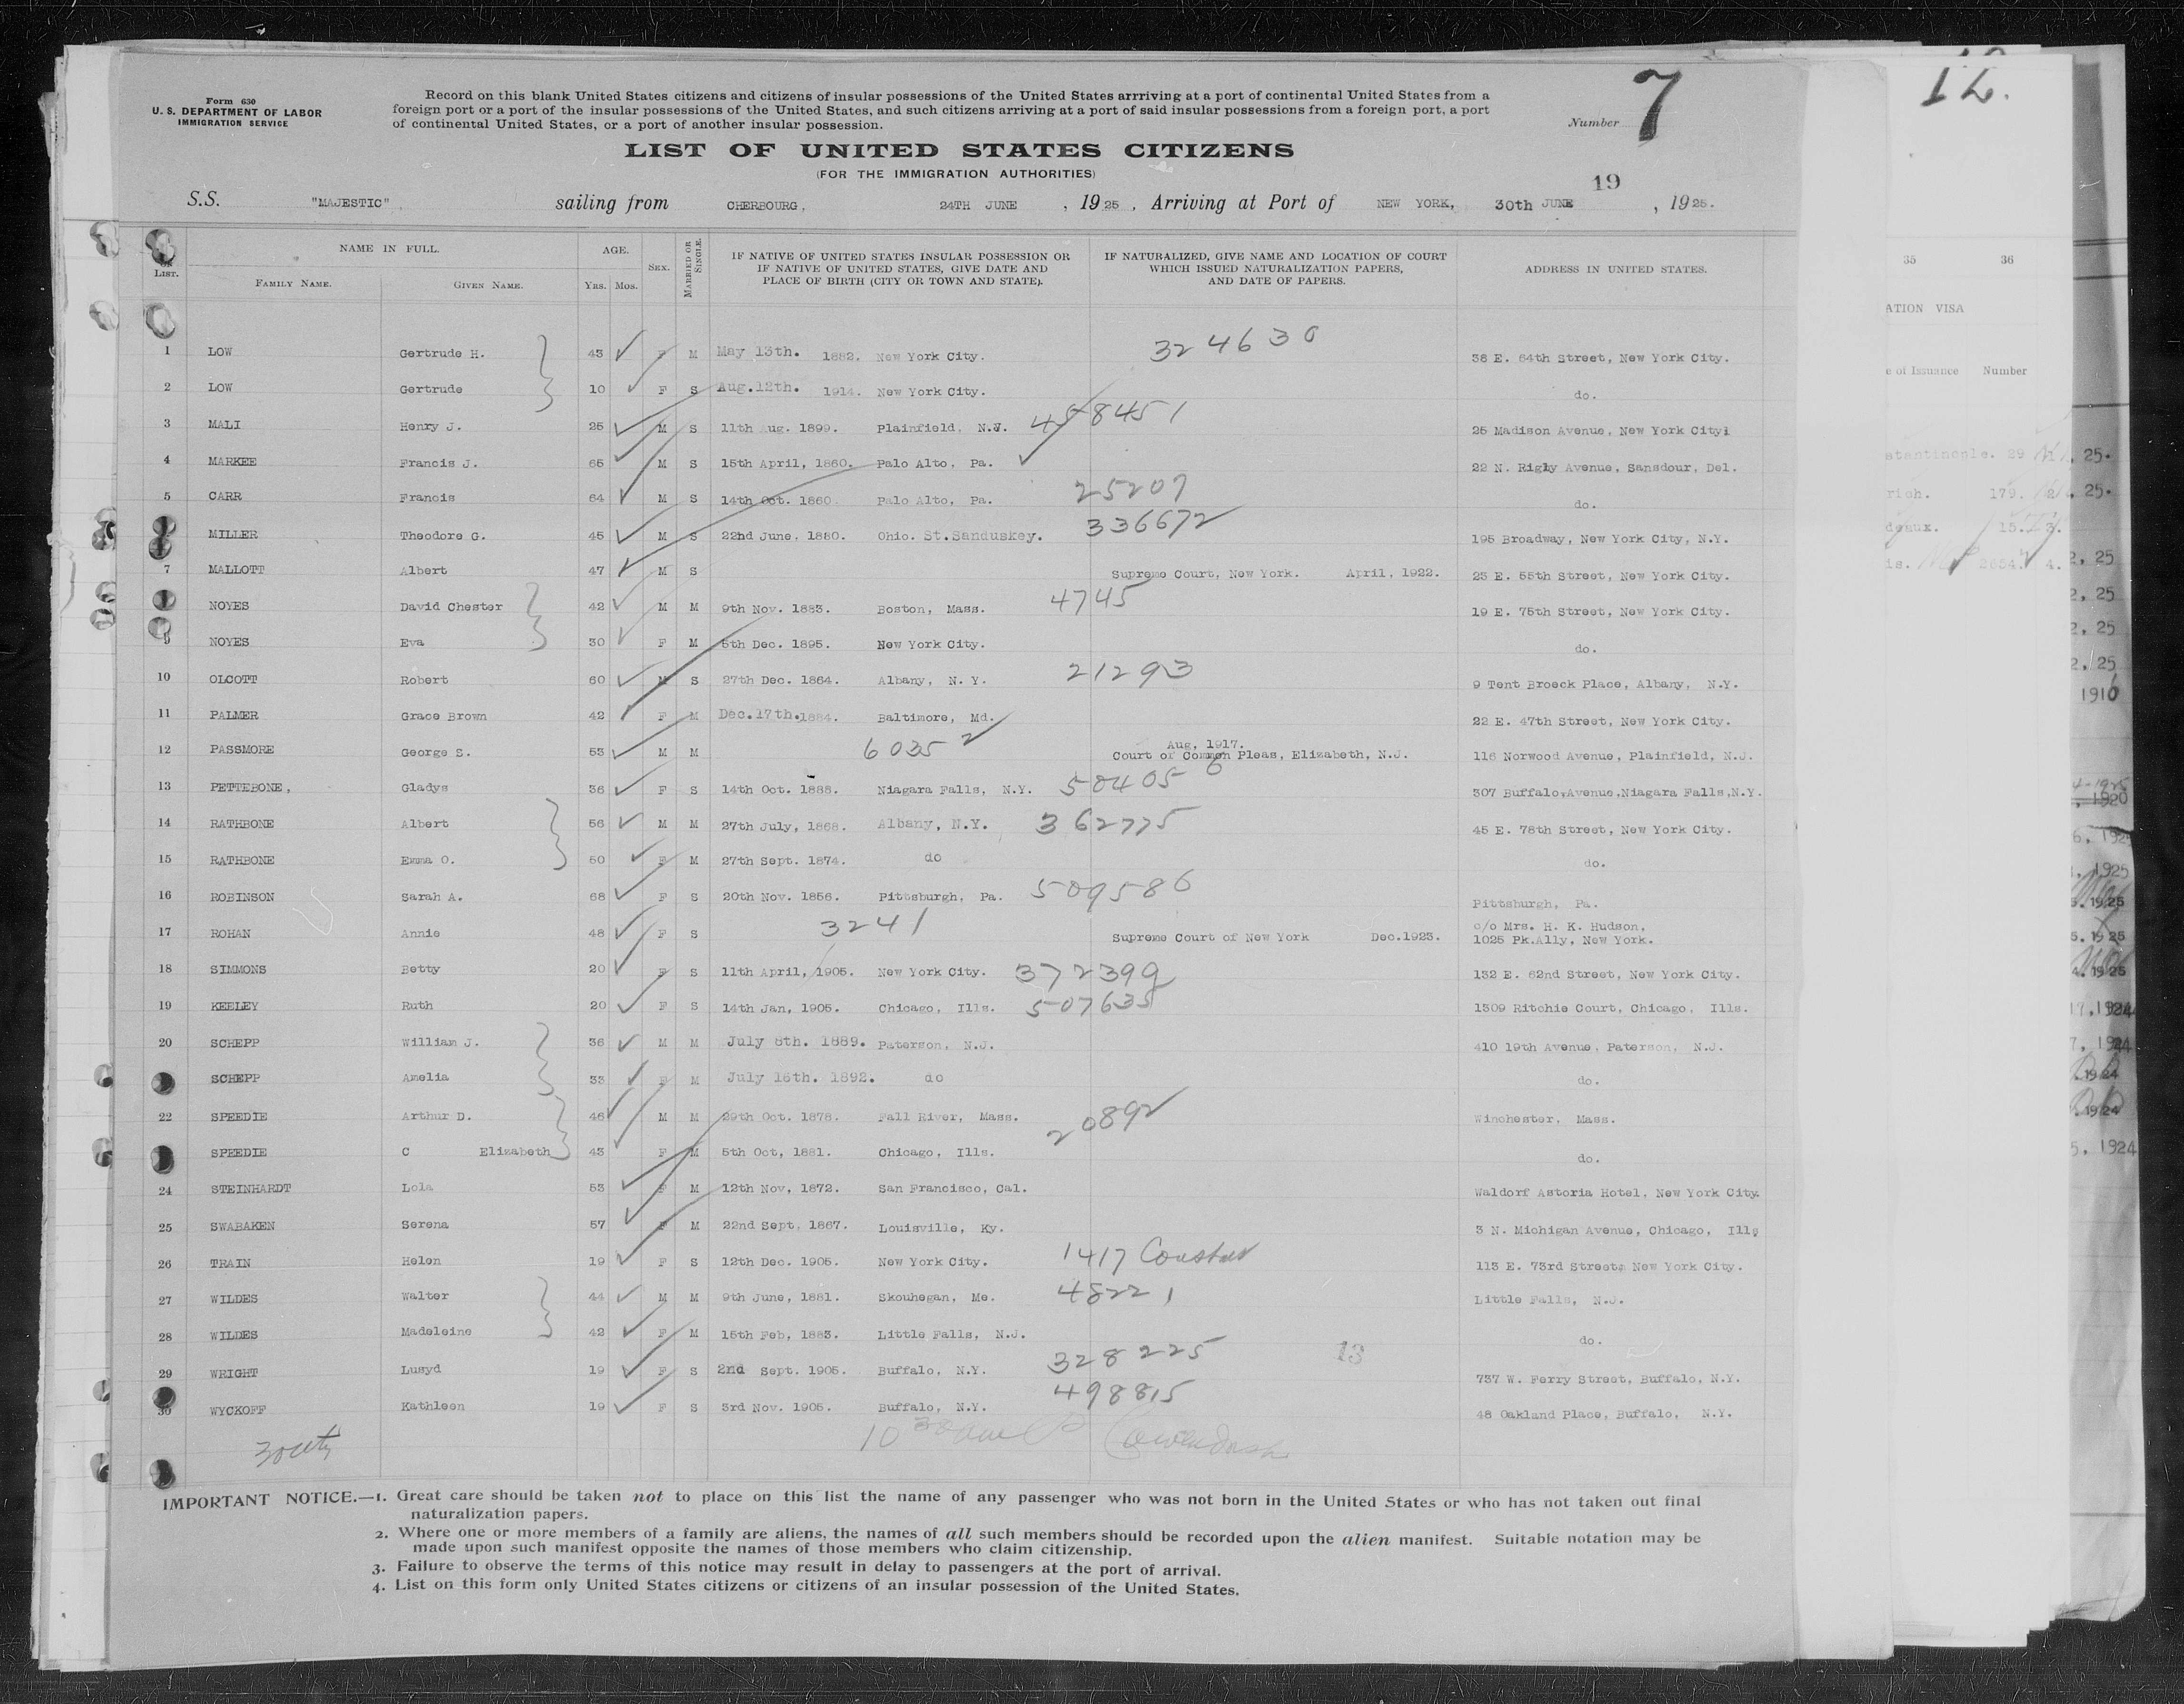 Form 630
U. S. DEPARTMENT OF LABOR
IMMIGRATION SERVICE
Record on this blank United States citizens and citizens of insular possessions of the United States arrriving at a port of continental United States from a
foreign port or a port of the insular possessions of the United States, and such citizens arriving at a port of said insular possessions from a foreign port, a port
of continental United States, or a port of another insular possession.
Number 7
12.
LIST OF UNITED STATES CITIZENS
(FOR THE IMMIGRATION AUTHORITIES)
19
S.S. "MAJESTIC" sailing from CHERBOURG, 24TH JUNE , 1925, Arriving at Port of NEW YORK, 30th JUNE , 1925.
LIST. NAME IN FULL. FAMILY NAME. GIVEN NAME. AGE. YRS. MOS. SEX. MARRIED OR SINGLE.
IF NATIVE OF UNITED STATES INSULAR POSSESSION OR
IF NATIVE OF UNITED STATES, GIVE DATE AND
PLACE OF BIRTH (CITY OR TOWN AND STATE).
IF NATURALIZED, GIVE NAME AND LOCATION OF COURT
WHICH ISSUED NATURALIZATION PAPERS,
AND DATE OF PAPERS.
ADDRESS IN UNITED STATES.
1 LOW Gertrude H. 43 F M May 13th. 1882. New York City. 324630 38 E. 64th Street, New York City.
2 LOW Gertrude 10 F S Aug.12th. 1914. New York City. do.
3 MALI Henry J. 25 M S 11th Aug. 1899. Plainfield, N.J. 458451 25 Madison Avenue, New York City
4 MARKEE Francis J. 65 M S 15th April, 1860. Palo Alto, Pa. 22 N. Rigby Avenue, Sansdour, Del.
5 CARR Francis 64 M S 14th Oct. 1860. Palo Alto, Pa. 25207 do.
MILLER Theodore G. 45 M S 22nd June, 1880. Ohio. St.Sanduskey. 336672 195 Broadway, New York City, N.Y.
7 MALLOTT Albert 47 M S Supreme Court, New York. April, 1922. 25 E. 55th Street, New York City.
NOYES David Chester 42 M M 9th Nov. 1883. Boston, Mass. 4745 19 E. 75th Street, New York City.
9 NOYES Eva 30 F M 5th Dec. 1895. New York City. do.
10 OLCOTT Robert 60 M S 27th Dec. 1864. Albany, N. Y. 21293 9 Tent Broeck Place, Albany, N.Y.
11 PALMER Grace Brown 42 F M Dec.17th.1884. Baltimore, Md. 22 E. 47th Street, New York City.
12 PASSMORE George S. 53 M M 60352 Aug, 1917.
Court of Common Pleas, Elizabeth, N.J. 116 Norwood Avenue, Plainfield, N.J.
13 PETTEBONE, Gladys 36 F S 14th Oct. 1888. Niagara Falls, N.Y. 504056 307 Buffalo,Avenue,Niagara Falls,N.Y.
14 RATHBONE Albert 56 M M 27th July, 1868. Albany, N.Y. 362775 45 E. 78th Street, New York City.
15 RATHBONE Emma O. 50 F M 27th Sept. 1874. do do.
16 ROBINSON Sarah A. 68 F S 20th Nov. 1856. Pittsburgh, Pa. 509586 Pittsburgh, Pa.
17 ROHAN Annie 48 F S 3241 Supreme Court of New York Dec.1923. c/o Mrs. H. K. Hudson,
1025 Pk.Ally, New York.
18 SIMMONS Betty 20 F S 11th April, 1905. New York City. 372399 132 E. 62nd Street, New York City.
19 KEELEY Ruth 20 F S 14th Jan, 1905. Chicago, Ills. 507635 1309 Ritchie Court, Chicago, Ills.
20 SCHEPP William J. 36 M M July 8th. 1889. Paterson, N.J. 410 19th Avenue, Paterson, N.J.
SCHEPP Amelia 33 F M July 16th. 1892. do do.
22 SPEEDIE Arthur D. 46 M M 29th Oct. 1878. Fall River, Mass. 20892 Winchester, Mass.
SPEEDIE C Elizabeth 43 F M 5th Oct, 1881. Chicago, Ills. do.
24 STEINHARDT Lola 53 F M 12th Nov, 1872. San Francisco, Cal. Waldorf Astoria Hotel, New York City.
25 SWABAKEN Serena 57 F M 22nd Sept, 1867. Louisville, Ky. 3 N. Michigan Avenue, Chicago, Ills
26 TRAIN Helen 19 F S 12th Dec. 1905. New York City. 1417 113 E. 73rd Street, New York City.
27 WILDES Walter 44 M M 9th June, 1881. Skouhegan, Me. 48221 Little Falls, N.J.
28 WILDES Madeleine 42 F M 15th Feb, 1883. Little Falls, N.J. do.
13
29 WRIGHT Lusyd 19 F S 2nd Sept. 1905. Buffalo, N.Y. 328225 737 W. Ferry Street, Buffalo, N.Y.
30 WYCKOFF Kathleen 19 F S 3rd Nov. 1905. Buffalo, N.Y. 498815 48 Oakland Place, Buffalo, N.Y.
IMPORTANT NOTICE.—1. Great care should be taken not to place on this list the name of any passenger who was not born in the United States or who has not taken out final
naturalization papers.
2. Where one or more members of a family are aliens, the names of all such members should be recorded upon the alien manifest. Suitable notation may be
made upon such manifest opposite the names of those members who claim citizenship.
3. Failure to observe the terms of this notice may result in delay to passengers at the port of arrival.
4. List on this form only United States citizens or citizens of an insular possession of the United States.
35 36
ATION VISA
e of Issuance Number